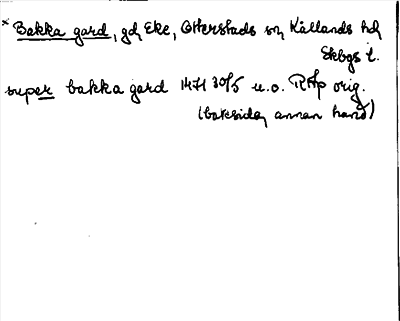 * Bakka gard, gd Eke, Otterstads sn Kållands hd
Skbgs l.
super bakka gard 1471 30/5 u.o. RAp orig.
(baksida, annan hand)